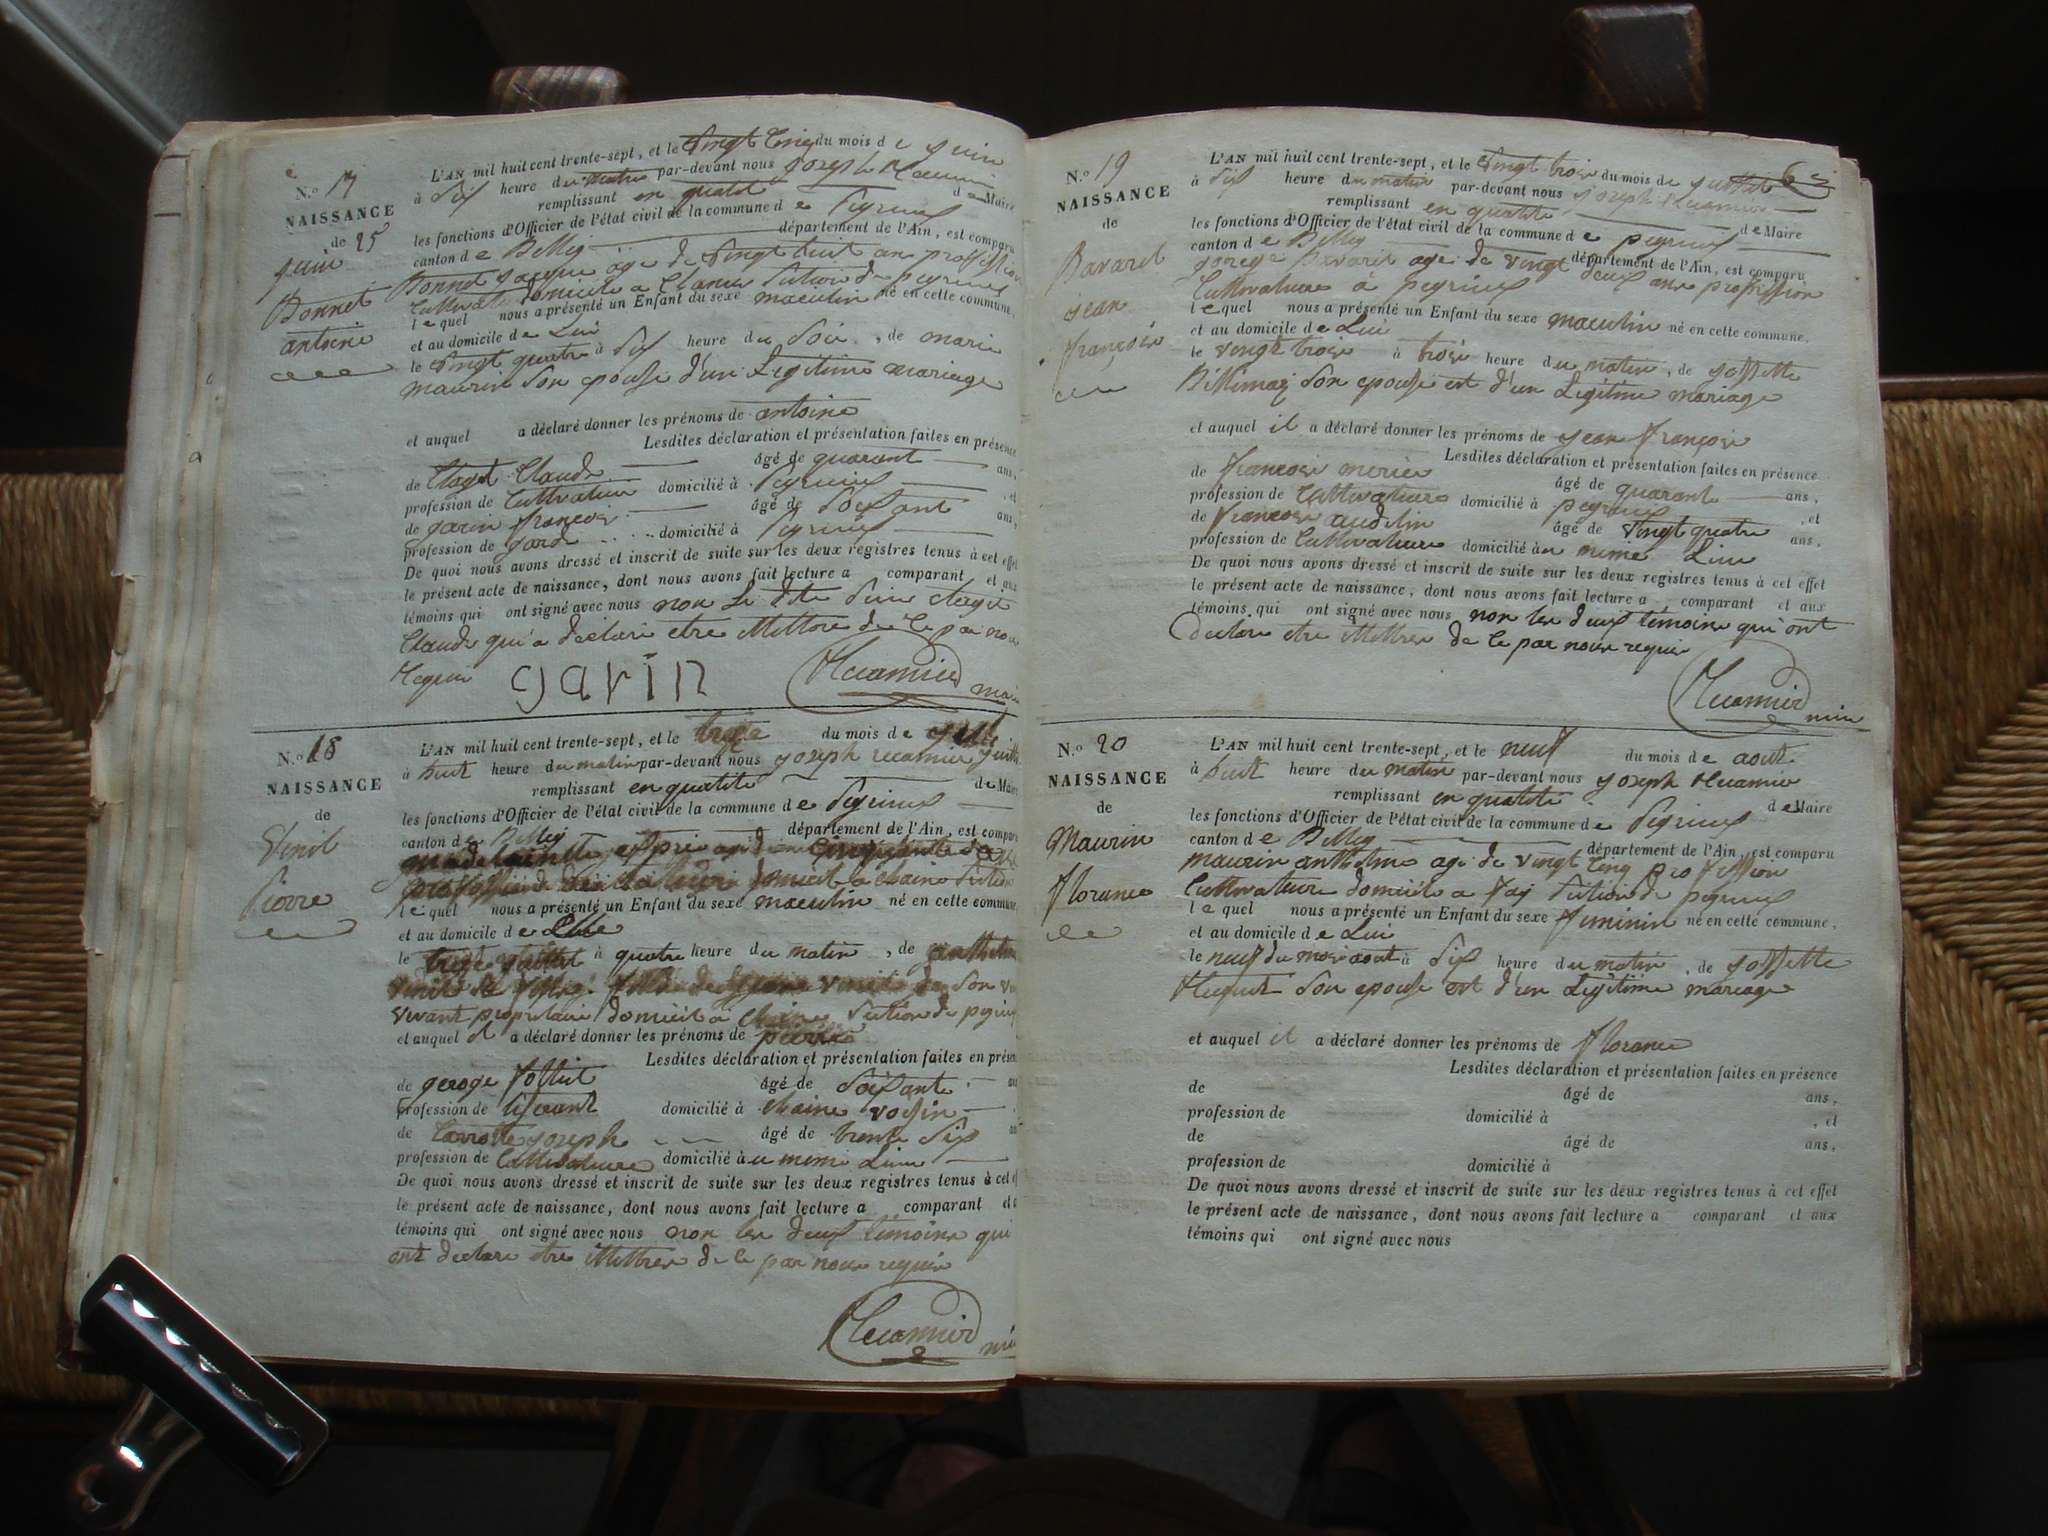 N.o 17
NAISSANCE
de 25
juin
Bonnet
antoine
L'AN mil huit cent trente-sept, et le vingt cinq du mois de juin
à dix heure du matin par-devant nous joseph Recamier
remplissant en qualité de Maire
les fonctions d'Officier de l'état civil de la commune de Peyrieux
canton de Belley département de l'Ain, est comparu
Bonnet jacque age de vingt huit ans profession
Cultivateur domicile a section de peyrieux
lequel nous a présenté un Enfant du sexe masculin né en cette commune.
et au domicile de Lui
le vingt quatre à dix heure du soir, de marie
maurin son epouse d'un Legitime mariage
et auquel a déclaré donner les prénoms de antoine
Lesdites déclaration et présentation faites en présence
de Claude âgé de quarant ans,
profession de Cultivateur domicilié à Peyrieux, et
de garin françois âgé de soisant ans,
profession de gard domicilié à Peyrieux
De quoi nous avons dressé et inscrit de suite sur les deux registres tenus à cet effet
le présent acte de naissance, dont nous avons fait lecture a comparant et aux
témoins qui ont signé avec nous non
Claude qui a declaré etre illettore de ce par nous
Requis garin Recamier maire
N.o 18
NAISSANCE
de
Vinit
Pierre
L'AN mil huit cent trente-sept, et le treize du mois de juillet
à huit heure du matin par-devant nous joseph recamier
remplissant en qualité de Maire
les fonctions d'Officier de l'état civil de la commune de Peyrieux
canton de Belley département de l'Ain, est comparu
profession domicile a chaine section
lequel nous a présenté un Enfant du sexe masculin né en cette commune.
et au domicile de
le treize juillet à quatre heure du matin, de
vivant propriétaire domicile a chaine section de peyrieux
et auquel il a déclaré donner les prénoms de pierre
Lesdites déclaration et présentation faites en présence
de george âgé de soisante
profession de tiserant domicilié à chaine voisin
de joseph âgé de trente six
profession de Cultivateur domicilié à u meme Lieu
De quoi nous avons dressé et inscrit de suite sur les deux registres tenus à cet
le présent acte de naissance, dont nous avons fait lecture a comparant et
témoins qui ont signé avec nous non les deux témoins qui
ont declare etre illettres de ce par nous requis
Recamier
N.o 19
NAISSANCE
de
Bavaret
jean
françois
L'AN mil huit cent trente-sept, et le vingt trois du mois de juillet
à dix heure du matin par-devant nous joseph Recamier
remplissant en qualité de Maire
les fonctions d'Officier de l'état civil de la commune de peyrieux
canton de Belley département de l'Ain, est comparu
george Bavaret age de vingt deux ans profession
Cultivateur à peyrieux
lequel nous a présenté un Enfant du sexe masculin né en cette commune.
et au domicile de Lui
le vingt trois à trois heure du matin, de josette
son epouse est d'un Legitime mariage
et auquel il a déclaré donner les prénoms de jean françois
Lesdites déclaration et présentation faites en présence
de françois merier âgé de quarant ans,
profession de Cultivateur domicilié à peyrieux, et
de françois audelin âgé de vingt quatre ans,
profession de Cultivateur domicilié à u meme Lieu
De quoi nous avons dressé et inscrit de suite sur les deux registres tenus à cet effet
le présent acte de naissance, dont nous avons fait lecture a comparant et aux
témoins qui ont signé avec nous non les deux témoins qui ont
declare etre illettres de ce par nous requis
Recamier
N.o 20
NAISSANCE
de
Maurin
florance
L'AN mil huit cent trente-sept, et le neuf du mois de août
à huit heure du matin par-devant nous joseph Recamier
remplissant en qualité de Maire
les fonctions d'Officier de l'état civil de la commune de Peyrieux
canton de Belley département de l'Ain, est comparu
maurin anthelme age de vingt cinq profession
Cultivateur domicile a fay section de peyrieux
lequel nous a présenté un Enfant du sexe feminin né en cette commune.
et au domicile de Lui
le neuf du mois aout à six heure du matin, de josette
Huguet son epouse est d'un Legitime mariage
et auquel il a déclaré donner les prénoms de florance
Lesdites déclaration et présentation faites en présence
de âgé de ans,
profession de domicilié à, et
de âgé de ans,
profession de domicilié à
De quoi nous avons dressé et inscrit de suite sur les deux registres tenus à cet effet
le présent acte de naissance, dont nous avons fait lecture a comparant et aux
témoins qui ont signé avec nous